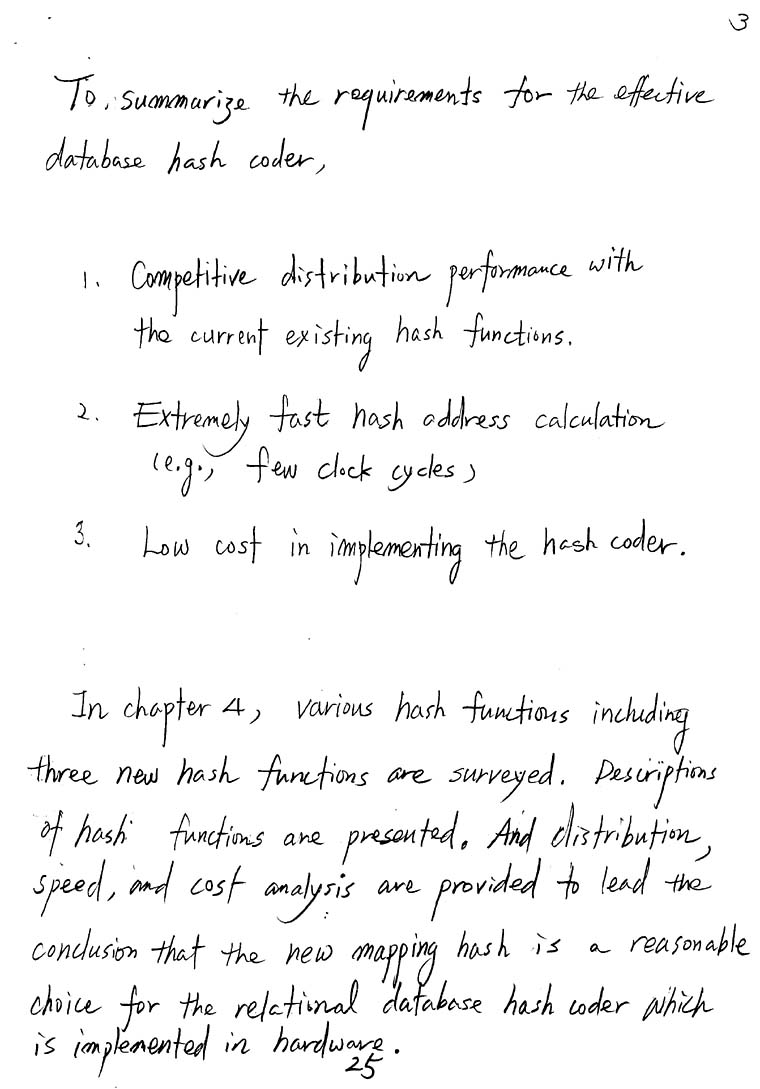 3
To, summarize the requirements for the effective
database hash coder,
1. Competitive distribution performance with
the current existing hash functions.
2. Extremely fast hash address calculation
(e.g., few clock cycles)
3. Low cost in implementing the hash coder.
In chapter 4, various hash functions including
three new hash functions are surveyed. Descriptions
of hash functions are presented. And distribution,
speed, and cost analysis are provided to lead the
conclusion that the new mapping hash is a reasonable
choice for the relational database hash coder which
is implemented in hardware.
25